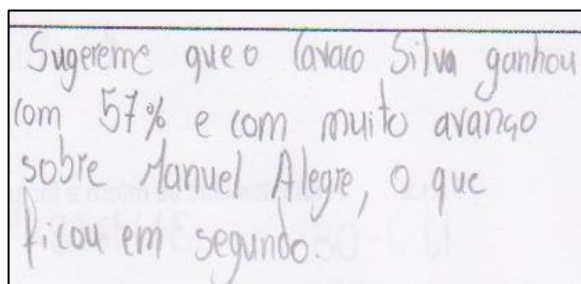 Sugereme que o Cavaco Silva ganhou
com 57% e com muito avanço
sobre Manuel Alegre, o que
ficou em segundo.